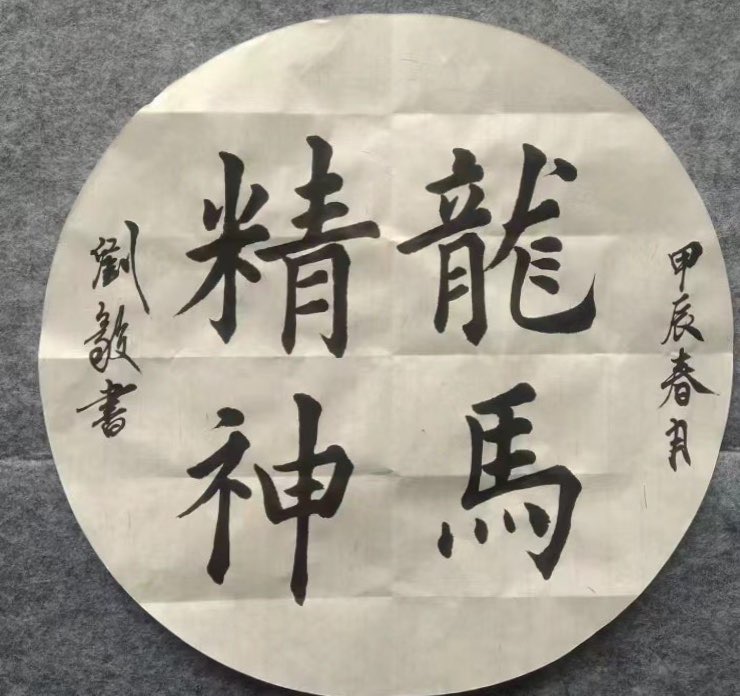 甲辰春月
龍馬
精神
劉毅書